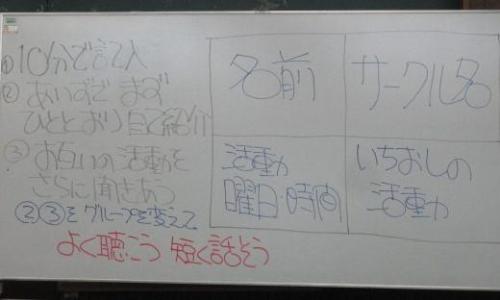 ①10分で記入
②あいずで まず
ひととおり自己紹介
③お互いの活動を
さらに聞きあう
②③をグループを変えて
よく聴こう 短く話そう
名前
サークル名
活動
曜日・時間
いちおしの
活動